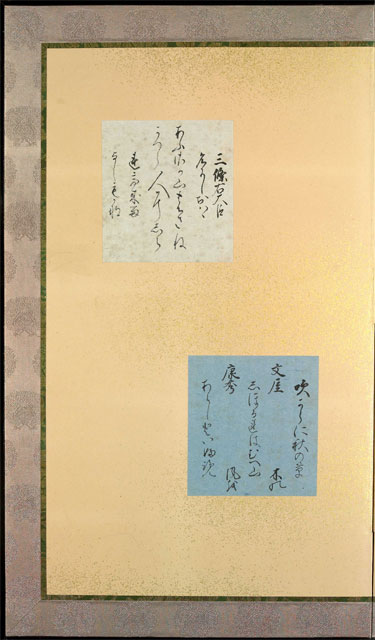 三條右大臣
名にしおはゝ
あふさか山のさね
かつら人にしら
吹からに秋の草
文屋
木の
しほるれはむへ山
康秀
風を
あらしといふらん